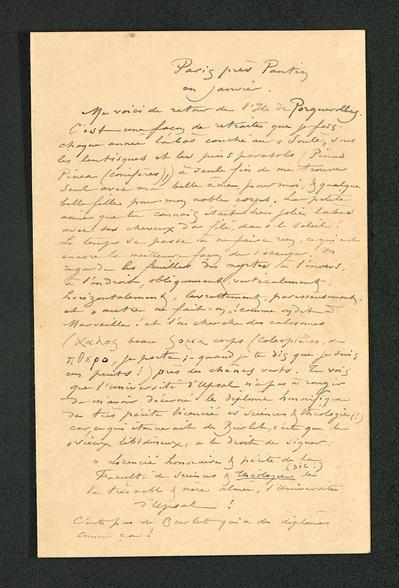 Paris près Pantin
en janvier.
Me voici de retour de l'Ile de Porquerolles.
C'est une façon de retraite que je fais
chaque année là bas couché au soleil, sous
les lentisques et les pins parasols (Pinus
Pinea (conifères)) à seule fin de me trouver
seul avec ma belle âme pour moi, & quelque
belle fille pour mon noble corps. La petite
amie que tu connais était bien jolie là bas
avec ses cheveux d'or filé, dans le soleil!
Le temps se passe à ne faire rien, ce qui est
encore la meilleure façon de s'occuper, on
regarde les feuilles des myrtes à l'envers,
à l'endroit, obliquement, verticalement,
horizontalement, paresseusement,
et "autre ne fait-on", comme on dit à
Marseille! et l'on cherche des calosomes
(Χαλος beau corps (coléoptères, du
je porte,- quand je te dis que je suis
un puits!) près des chênes verts. Tu vois
que l'Université d'Upsal n'a pas à rougir
de m'avoir décerné le diplôme honorifique
de très périte licencié ès sciences & théologie (!)
ce qui étonnerait de Burlet, c'est que le
"vieux débineux" a le droit de signer:
"Licencié honoraire & périte de la
Faculté de sciences & théologie (sic!) de
la très noble & alme, l'Université
d'Upsal!
C'est pas de Burlet qui a des diplômes
comme ça!